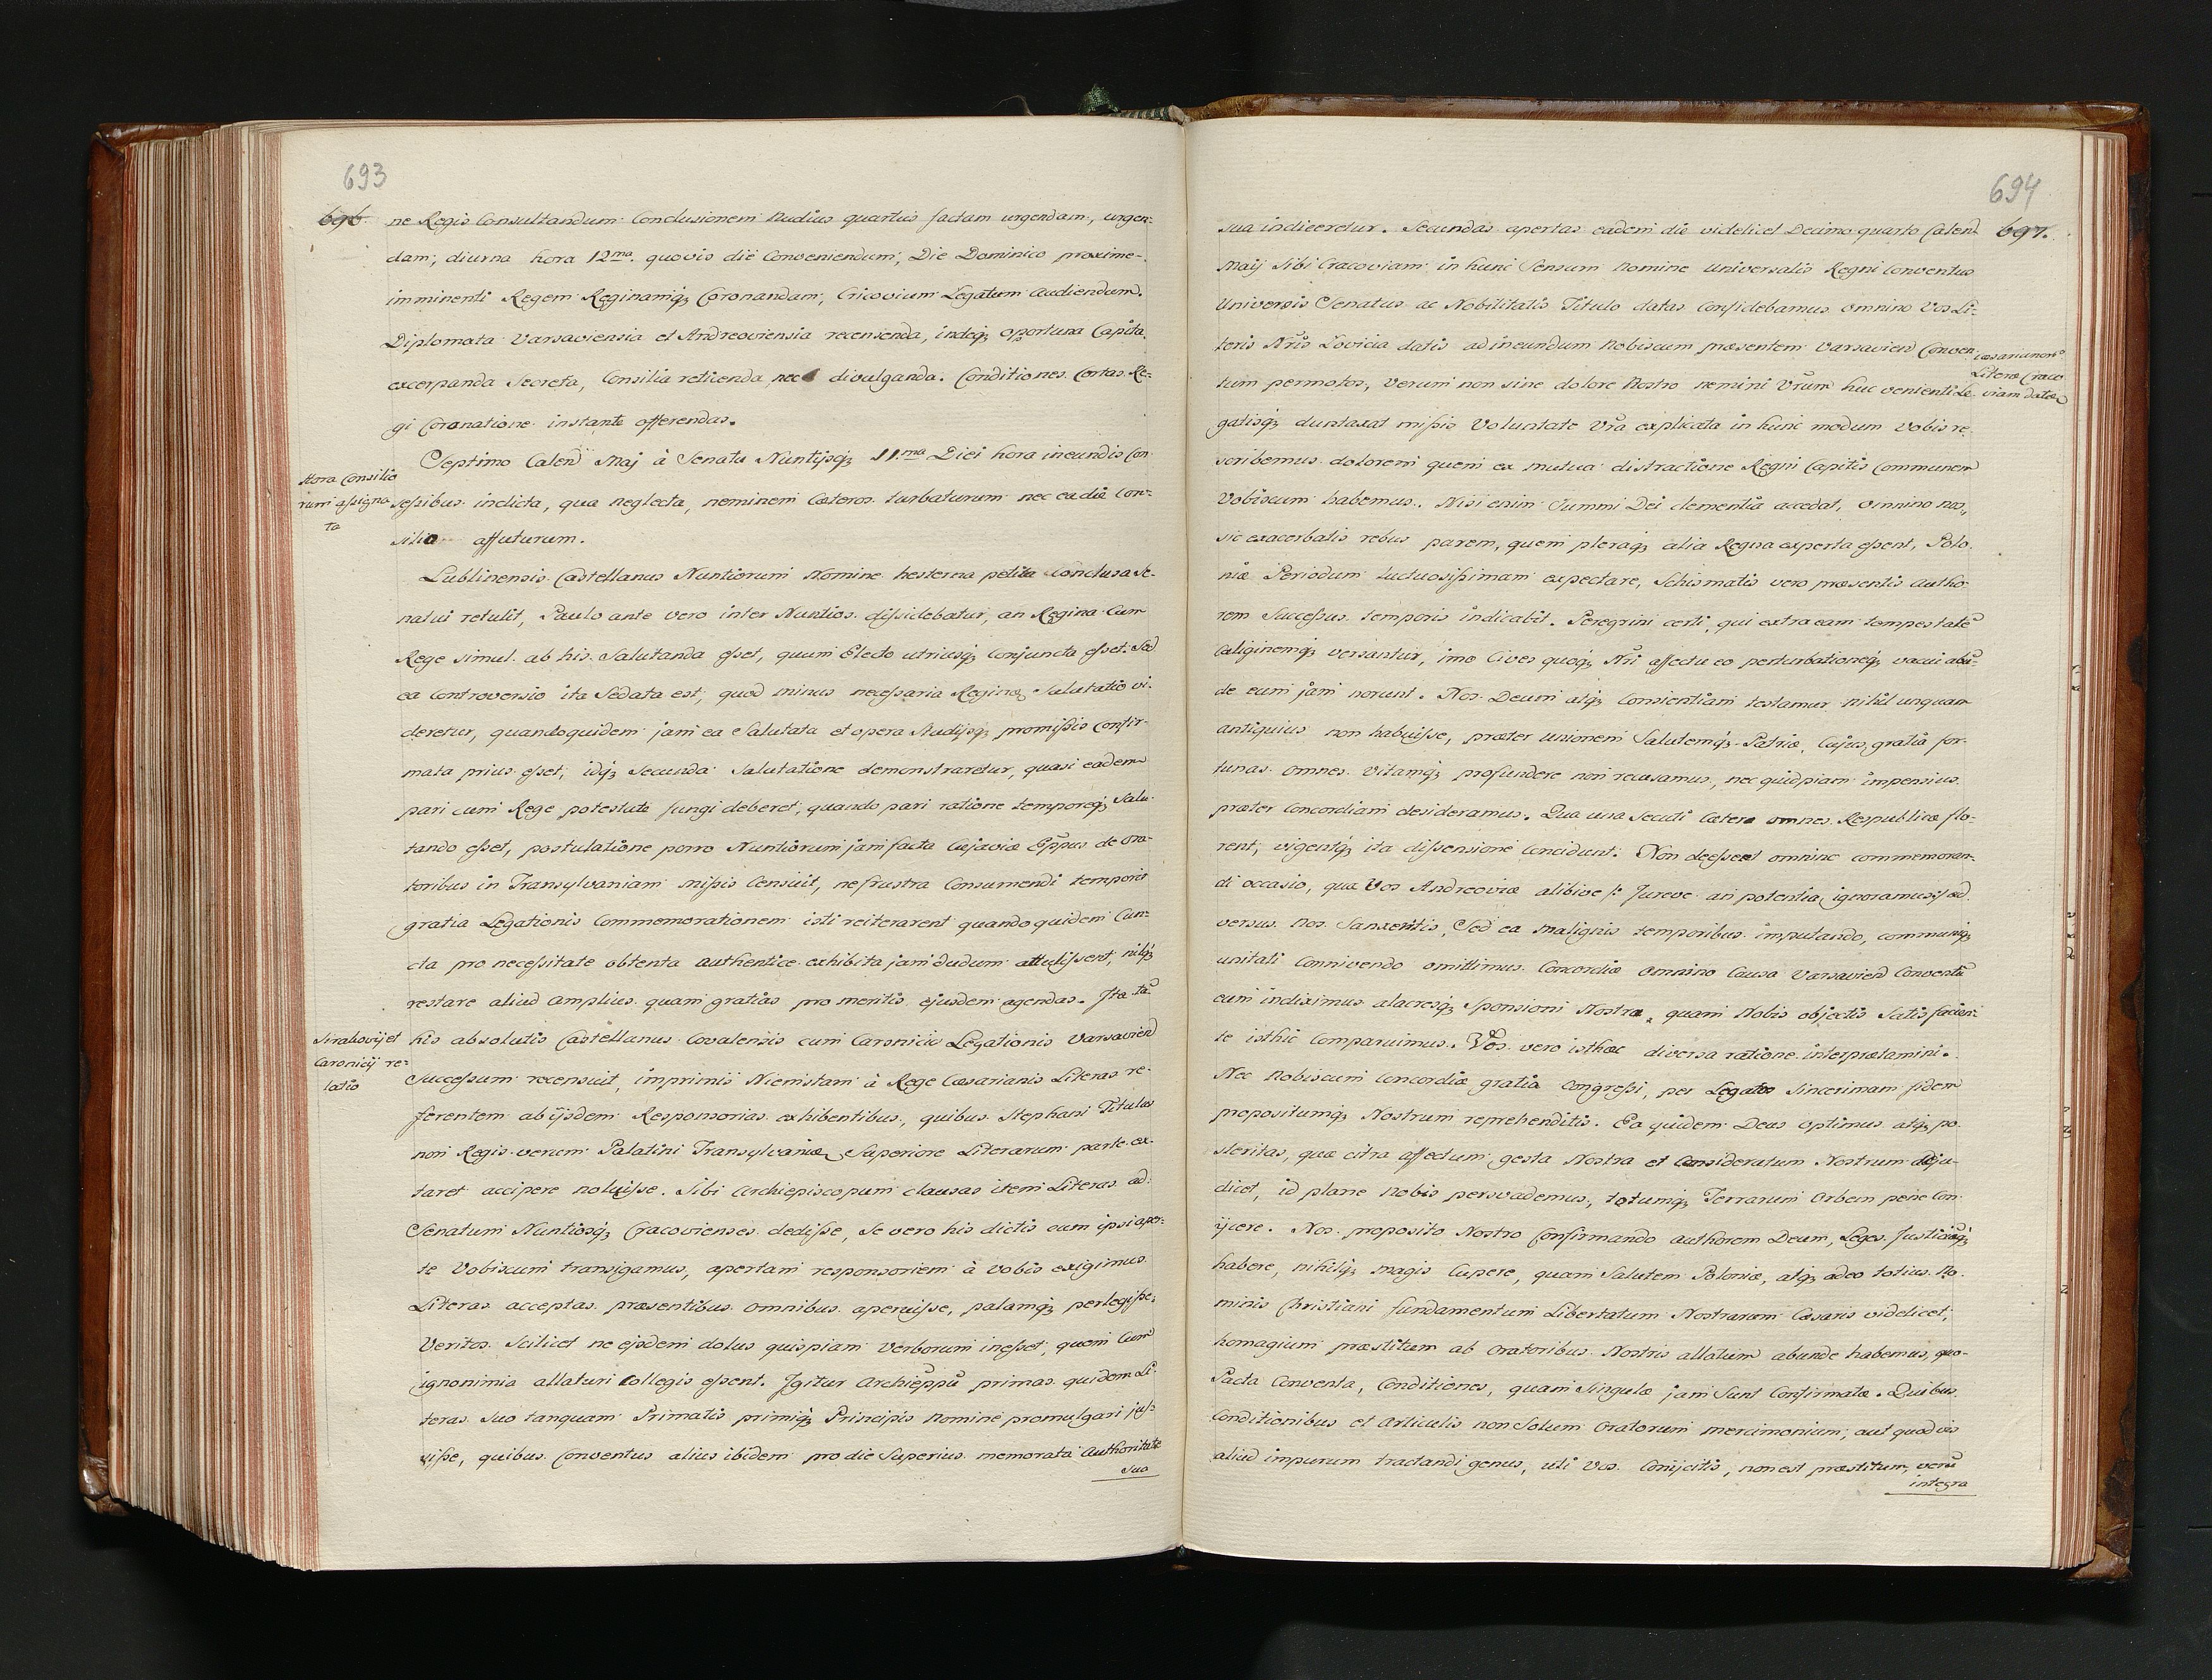 693
696.
ne Regis Consultandum Conclusionem Nudius quartus factam urgendam, urgen:
dam, diurna hora 12ma. quovis die Conveniendum, Die Dominico proxime
imminenti Regem Reginamq3 Coronandam, Cricovium Legatum audiendum.
Diplomata Varsaviensia et Andreoviensia recensenda, indeq3 oportuna Capita
excerpanda Secreta, Consilia reticenda, nec divulganda. Conditiones Certas Re:
gi Coronatione instante offerendas.
Hora Consilio
rum assigna
ta
Septimo Calend Maj à Senatu Nuntijsq3 11.ma Diei hora ineundis Con
sessibus indicta, qua neglecta, neminem Cæteros turbaturum nec ea die Con:
silio affuturum.
Lublinensis Castellanus Nuntiorum Nomine hesterna petita Conclusa Se:
natui retulit, Paulo ante vero inter Nuntios dissidebatur, an Regina Cum
Rege simul ab his Salutanda esset, quum Electo utriusq3 Conjuncta esset. Sed
ea Controversio ita Sedata est, quod minus necessaria Reginæ Salutatio vi:
deretur, quandoquidem jam ea Salutata et opera Studijsq3 promissis Confir:
mata prius esset, idq3 Secunda Salutatione demonstraretur, quasi eadem
pari cum Rege potestate fungi deberet, quando pari ratione temporeq3 Salu:
tando esset, postulatione porro Nuntiorum jam facta Cujaviæ Eppus de Ora:
toribus in Transylvaniam missis Censuit, ne frustra Consumendi temporis
gratia Legationis Commemorationem isti reiterarent quandoquidem Cun:
cta pro necessitate obtenta authentice exhibita jamdudum attulissent, nilq3
restare aliud amplius quam gratias pro meritis ejusdem agendas. Ita tã
Sirakovij et
Caronicij re:
latio
his absolutis Castellanus Covalensis cum Caronicio Legationis Varsavien
Successum recensuit, imprimis Niemstam à Rege Cæsarianis Literas re:
ferentem ab ijsdem Responsorias exhibentibus, quibus Stephani Titulos
non Regis verum Palatini Transylvaniæ Superiore Literarum parte ex:
taret accipere noluisse. Sibi Archiepiscopum clausas item Literas ad
Senatum Nuntiosq3 Cracovienses dedisse, Se vero his dictis cum ipsi aper:
te Vobiscum transigamus, apertam responsoriem à Vobis exigimus
Literas acceptas præsentibus omnibus aperuisse, palamq3 perlegisse.
Veritos Scilicet ne ejsdem dolus quispiam Verborum inesset, quem Cum
ignonimia allaturi Collegis essent. Igitur Archieppũ primas quidem Li:
teras Suo tanquam Primatis primiq3 Principis Nomine promulgari jus:
sisse, quibus Conventus alius ibidem pro die Superius memorata Authoritate
Sua
694
697.
sua indiceretur. Secundas apertas eadem die videlicet Decimo quarto Calend
Maij Sibi Cracoviam in hunc Sensum Nomine Universalis Regni Conventus
Universis Senatus ac Nobilitatis Titulo datas Confidebamus omnino Vos Li:
teris Nr̃is Lovicia datis ad ineundum Nobiscum præsentem Varsavien Conven
Cæsarianorũ
Literæ Craco
viam datæ
tum permotos, Verum non sine dolore Nostro nemini Vr̃um huc venienti Le
gatisq3 duntaxat missis Voluntate Vr̃a explicata in hunc modum Vobis re
scribemus dolorem quem ex mutua distractione Regni Capitis Communem
Vobiscum habemus. Nisi enim Summi Dei clementia accedat, omnino nos,
sic exacerbatis rebus parem, quem pleraq3 alia Regna experta essent, Polo
niæ Periodum luctuosissimam expectare, Schismatis vero præsentis Autho
rem Successus temporis indicabit. Peregrini certi, qui extra eam tempestatẽ
Caliginemq3 versantur, imo Cives quoq3 Nr̃i affectu eo perturbationeq3 vacui abũ:
de eum jam norunt. Nos Deum atq3 Consientiam testamur nihil unquam
antiquius non habuisse, præter Unionem Salutemq3 Patriæ, Cujus gratia for:
tunas omnes Vitamq3 profundere non recusamus, nec quidpiam impensius
præter Concordiam desideramus. Qua una Secuti Cæteræ omnes Respublicæ flo:
rent, vigentq3 ita dissensione Concidunt. Non deesset omnino commemoran:
di occasio, quæ Vos Andreoviæ alibive /: Jureve an potentia, ignoramus :/ ad
versus Nos Sanxeritis, Sed ea malignis temporibus imputando, communiq3
unitati Connivendo omittimus Concordiæ omnino Causa Varsavien Conventũ
eum indiximus alacresq3 Sponsioni Nostræ, quam Nobis objectis Satis facien:
te isthic Comparuimus. Vos vero isthæc diversa ratione interprætamini.
Nec Nobiscum Concordiæ gratia Congressi, per Legatos Sincerimam fidem
propositumq3 Nostrum reprehenditis. Ea quidem Deus Optimus atq3 po
steritas, quæ citra affectum gesta Nostra et Consideratum Nostrum adju:
dicet, id plane Nobis persvademus, totumq3 Terrarum Orbem pene Con
ijcere. Nos proposito Nostro Confirmando authorem Deum, Leges Justiciãq3
habere, nihilq3 magis Cupere, quam Salutem Poloniæ, atq3 adeo totius No
minis Christiani fundamentum Libertatum Nostrarum Cæsaris videlicet,
homagium præstitum ab Oratoribus Nostris allatum abunde habemus, quo
Pacta Conventa, Conditiones, quam Singulæ jam Sunt Confirmatæ. Quibus
Conditionibus et Articulis non Solum Oratorum mercimonium, aut quod vis
aliud impurum tractandi genus, uti Vos Conijcitis, non est præstitum, verũ
integra